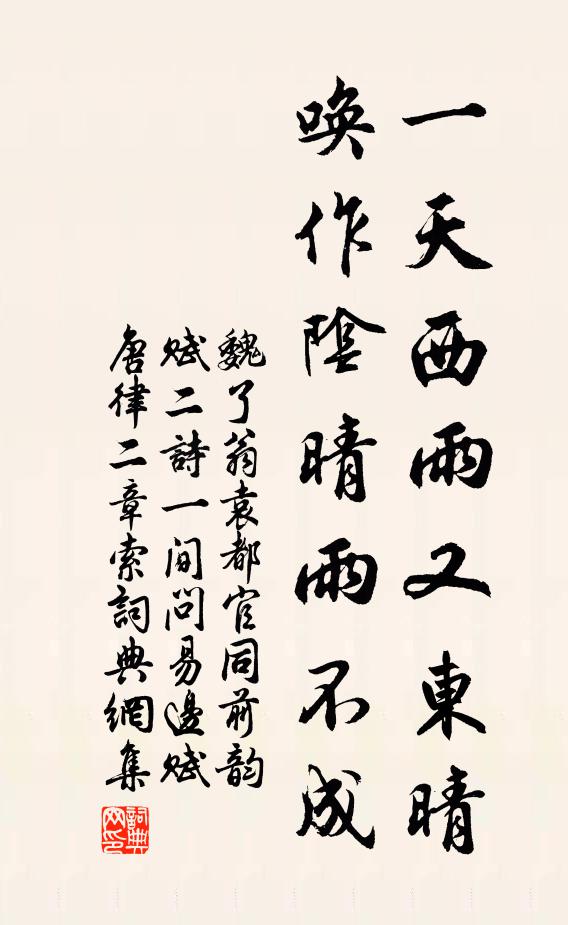 一天西雨又東晴
喚作陰晴雨不成
魏了翁袁都官同前韵
賦二詩一间问易邊賦
唐律二章索詞典網集
詞典
网印